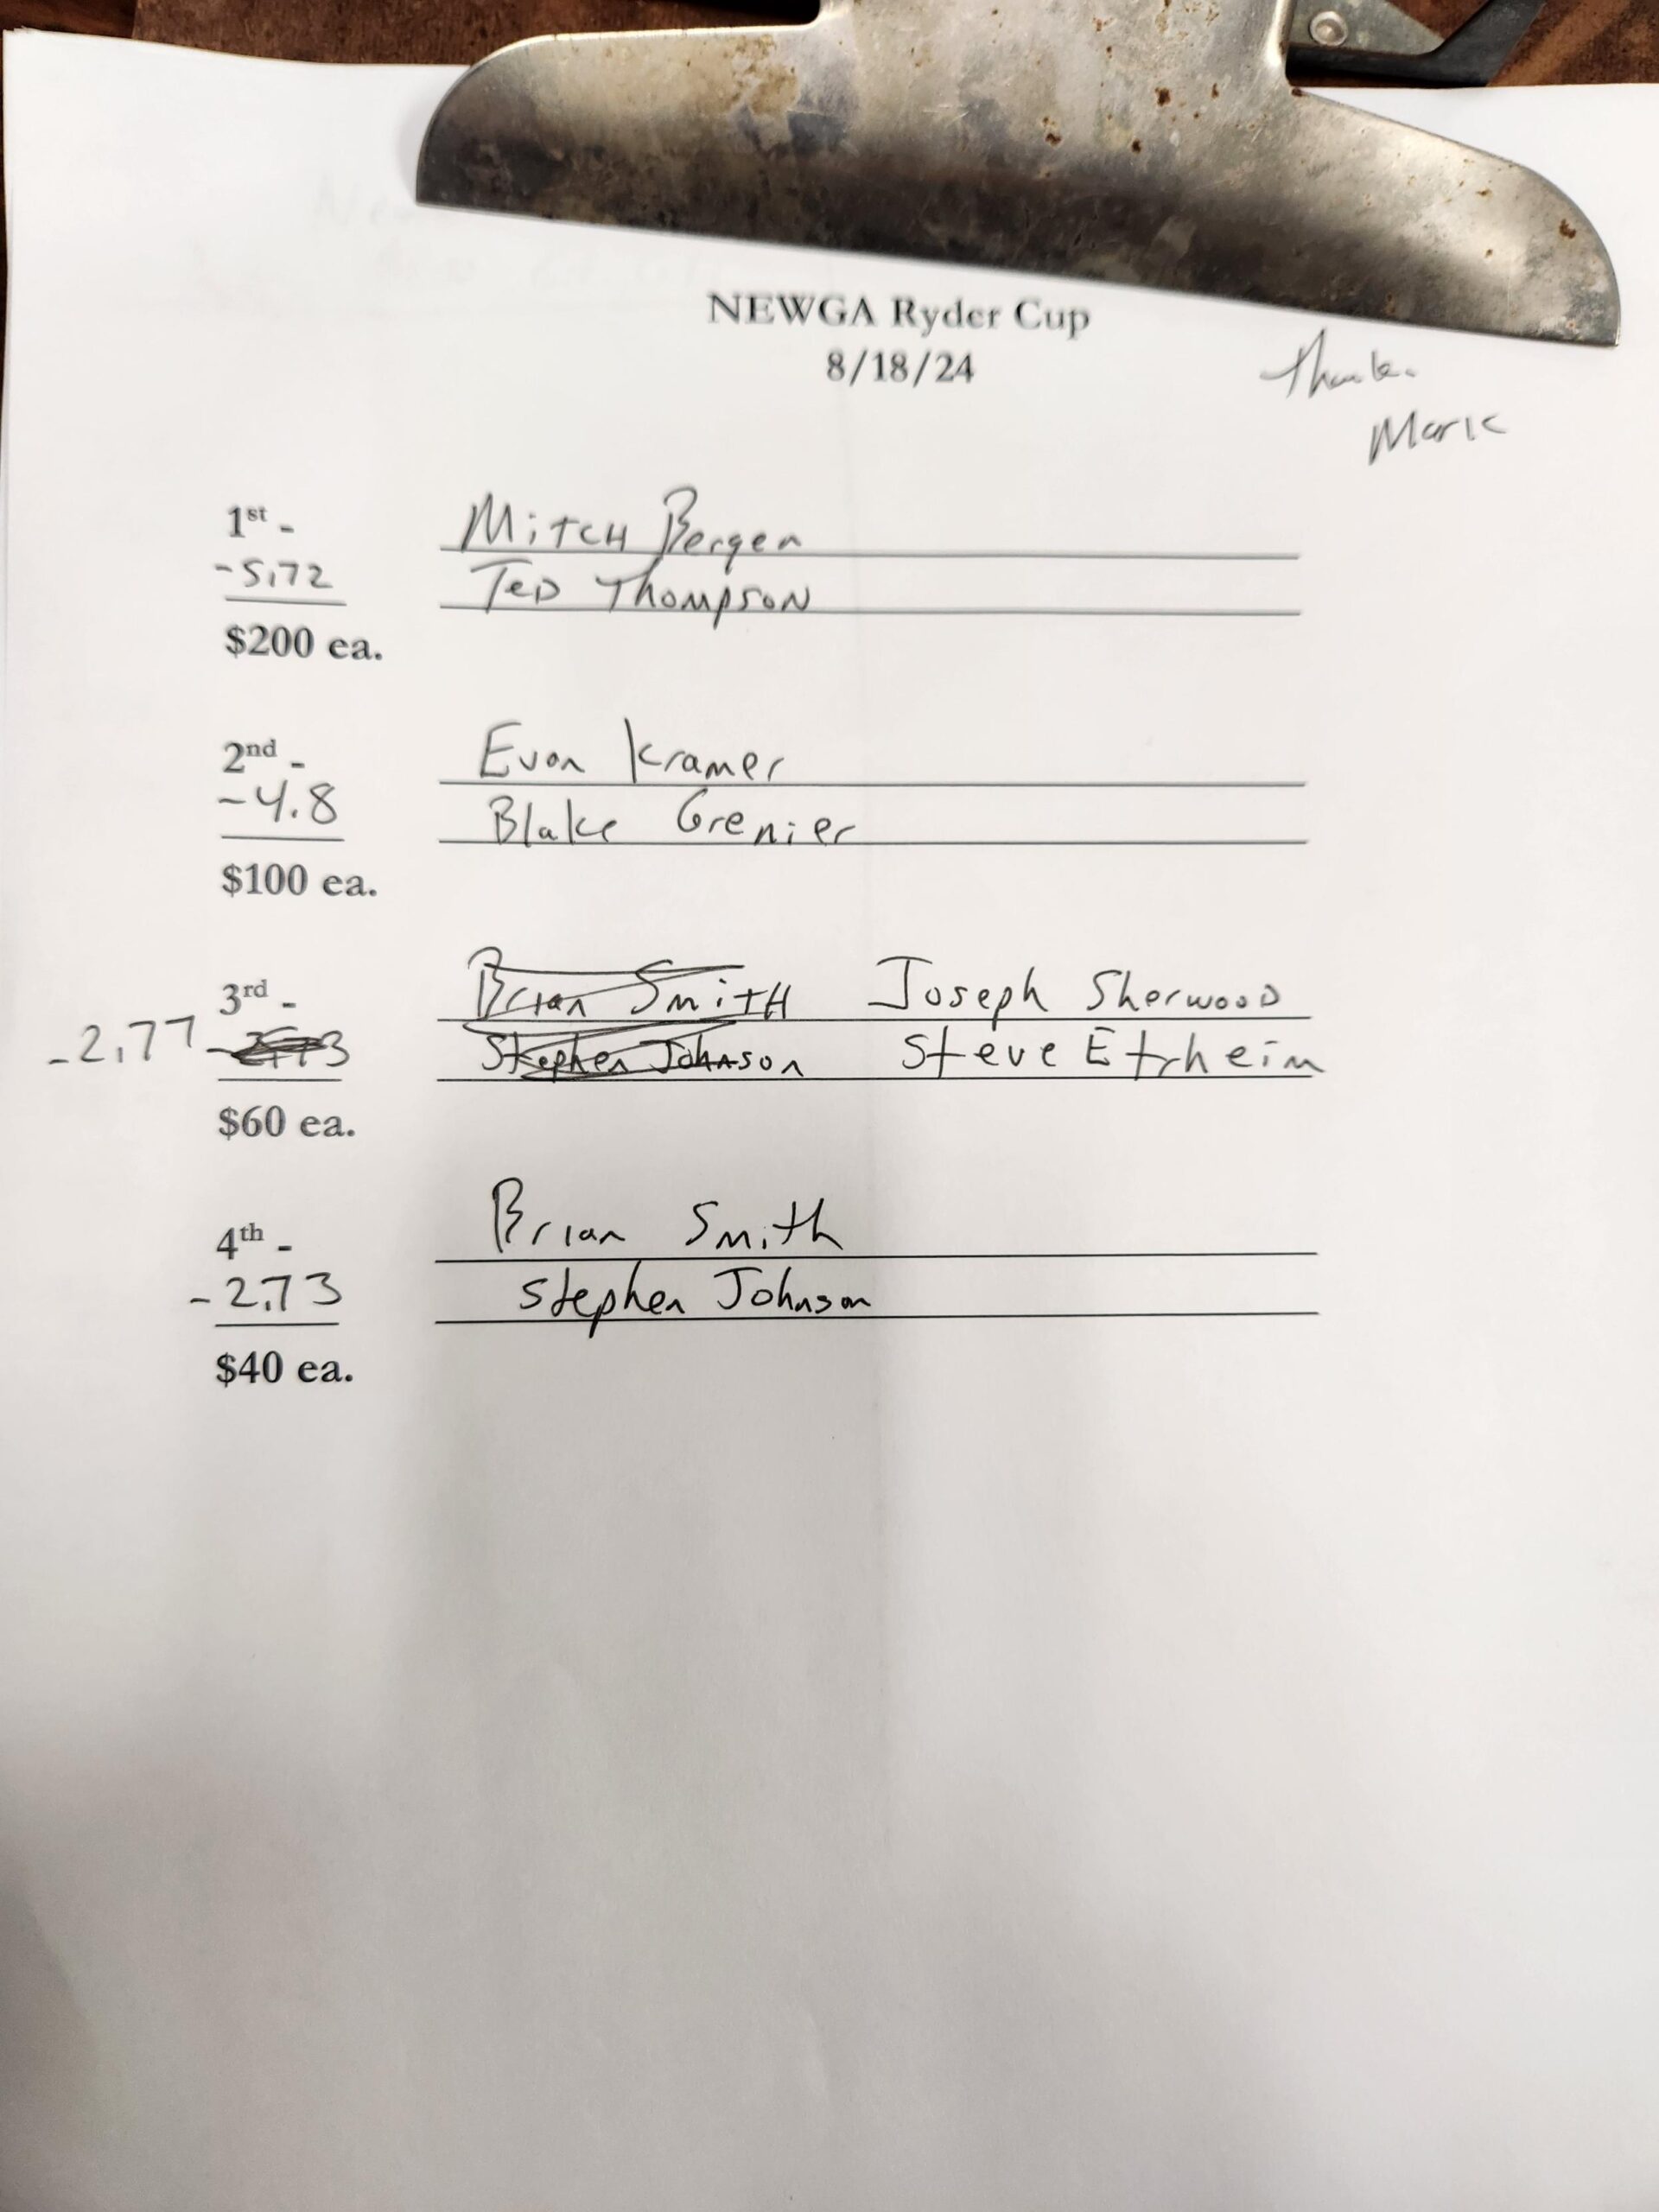 NEWGA Ryder Cup
8/18/24
Thanks
Mark
1st -
Mitch Bergen
-5.72
Ted Thompson
$200 ea.
2nd -
Evan Kramer
-4.8
Blake Grenier
$100 ea.
3rd -
Brian Smith Joseph Sherwood
-2.77 -2.73
Stephen Johnson Steve Etrheim
$60 ea.
4th -
Brian Smith
-2.73
Stephen Johnson
$40 ea.